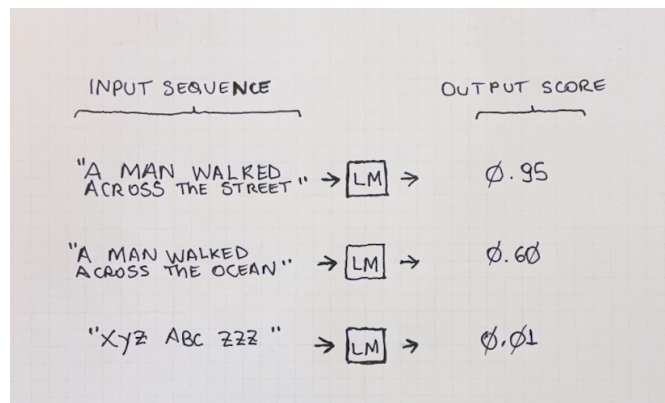 INPUT SEQUENCE
OUTPUT SCORE
"A MAN WALKED
ACROSS THE STREET" → LM → 0.95
"A MAN WALKED
ACROSS THE OCEAN" → LM → 0.60
"XYZ ABC ZZZ " → LM → 0.01